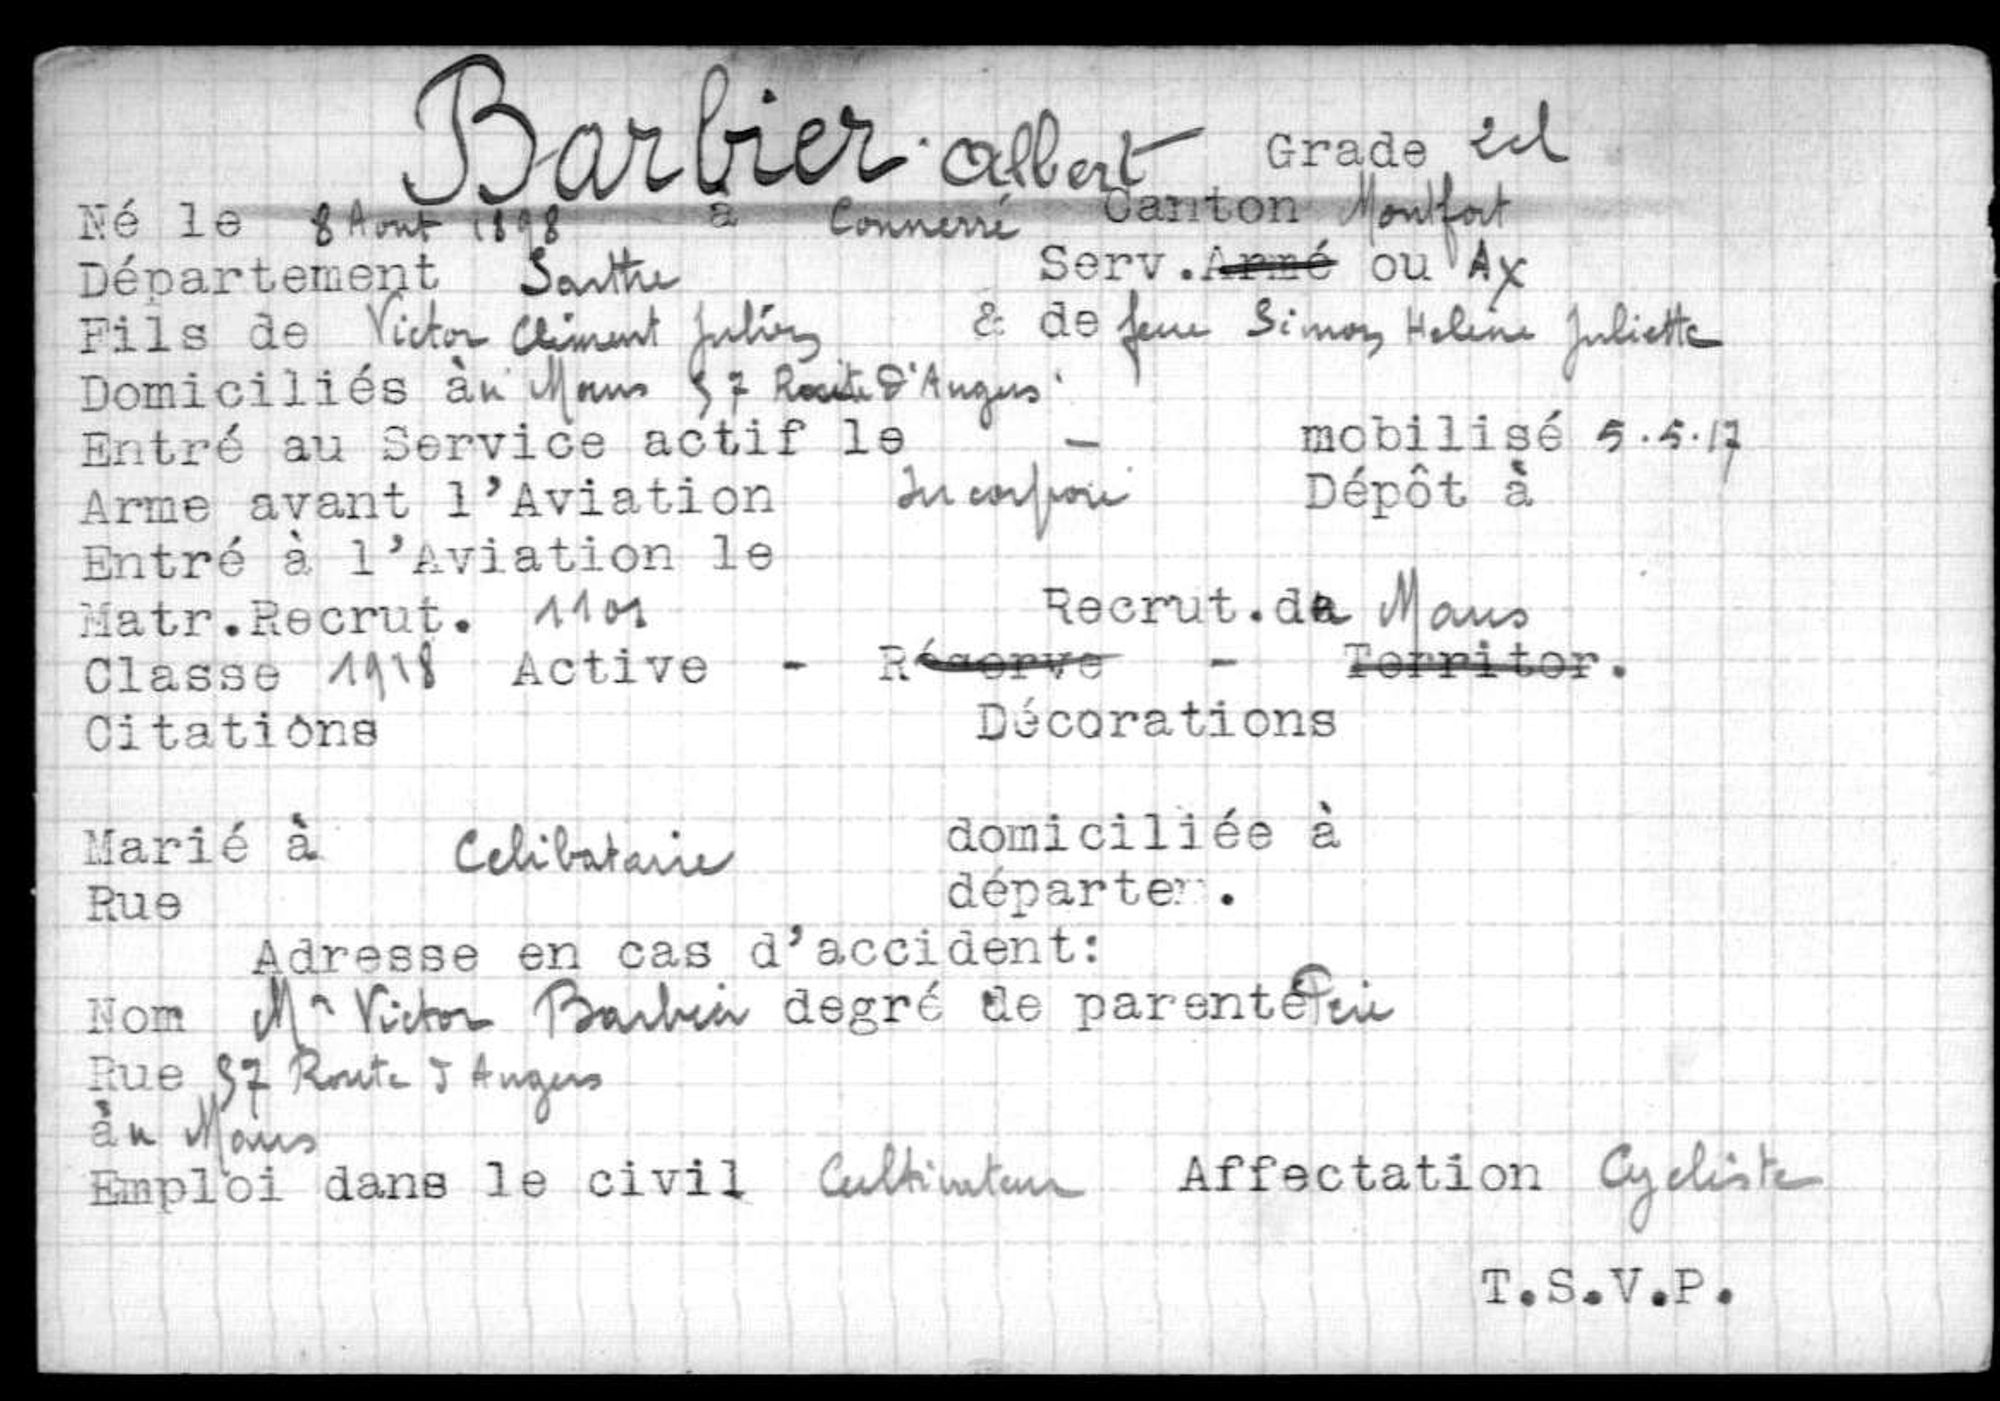 Barbier Albert Grade 2cl
Né le 8 Aout 1898 à Connerré Canton Montfort
Département Sarthe Serv. Armé ou Ax
Fils de Victor Clément Julien & de feue Simon Helene Juliette
Domiciliés àu Mans 57 Route d'Angers
Entré au Service actif le - mobilisé 5.5.17
Arme avant l'Aviation Incorporé Dépôt à
Entré à l'Aviation le
Matr.Recrut. 1101 Recrut. du Mans
Classe 1918 Active - Réserve - Territor.
Citations Décorations
Marié à Celibataire domiciliée à
Rue départem.
Adresse en cas d'accident:
Nom Mr Victor Barbier degré de parenté Père
Rue 57 Route d Angers
àu Mans
Emploi dans le civil Cultivateur Affectation Cycliste
T.S.V.P.